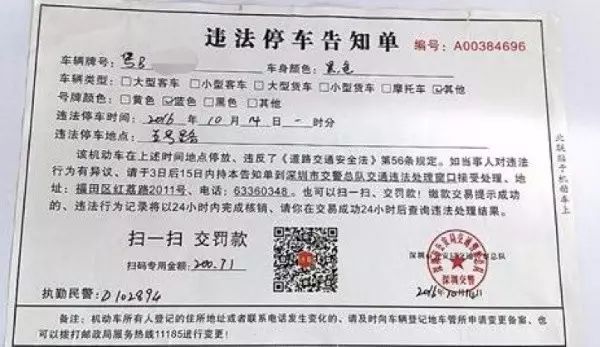 违法停车告知单 编号：A00384696
车辆牌号： 粤B 车身颜色：黑色
车辆类型：□大型客车 □小型客车 □大型货车 □小型货车 □摩托车 ☑其他
号牌颜色：□黄色 ☑蓝色 □黑色 □其他
违法停车时间：2016年10月14日一时分
违法停车地点：
该机动车在上述时间地点停放、违反了《道路交通安全法》第56条规定。如当事人对违法
行为有异议、请于3日后15日内持本告知单到深圳市交警总队交通违法处理窗口接受处理、地
址：福田区红荔路2011号、电话：63360348。也可以扫一扫、交罚款！缴款交易提示成功
的、违法行为记录将以24小时内完成核销、请你在交易成功24小时后查询违法处理结果。
扫一扫 交罚款
扫码专用金额：200.71
执勤民警：D102894
深圳交警
2016年10月14日
此联贴于机动车上
备注：机动车所有人登记的住所地址或者联系电话发生变化的、请及时向车辆登记地车管所申请变更备案、也
可以拨打邮政局服务热线11185进行变更！